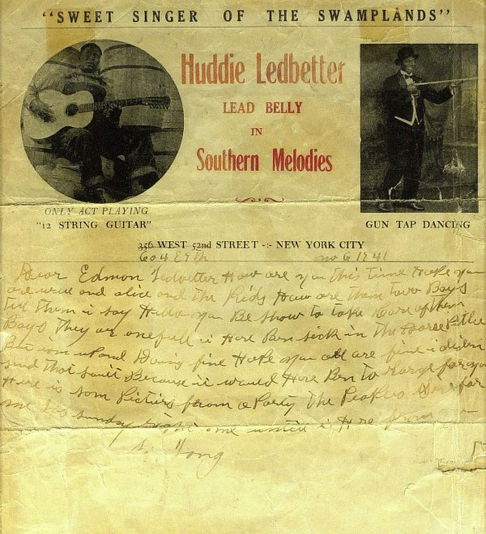 "SWEET SINGER OF THE SWAMPLANDS"
Huddie Ledbetter
LEAD BELLY
IN
Southern Melodies
ONLY ACT PLAYING
"12 STRING GUITAR"
GUN TAP DANCING
356 WEST 52nd STREET -:- NEW YORK CITY
604 E 9th nov 6 1941
Dear Edmon Ledbetter How are you this time Hope you
are well and alive and the Kids How are them two Boys
Tell them i say Hello you Be show to take Care of them
Boys They are i Have Ben sick in the Horse Pittle
But i am up and Doing fine Hope you all are fine i
send that suit Because it would Have Ben to Large for you
Here is som Pictures from a Party The Peoples
me sunday night me untill i Here from